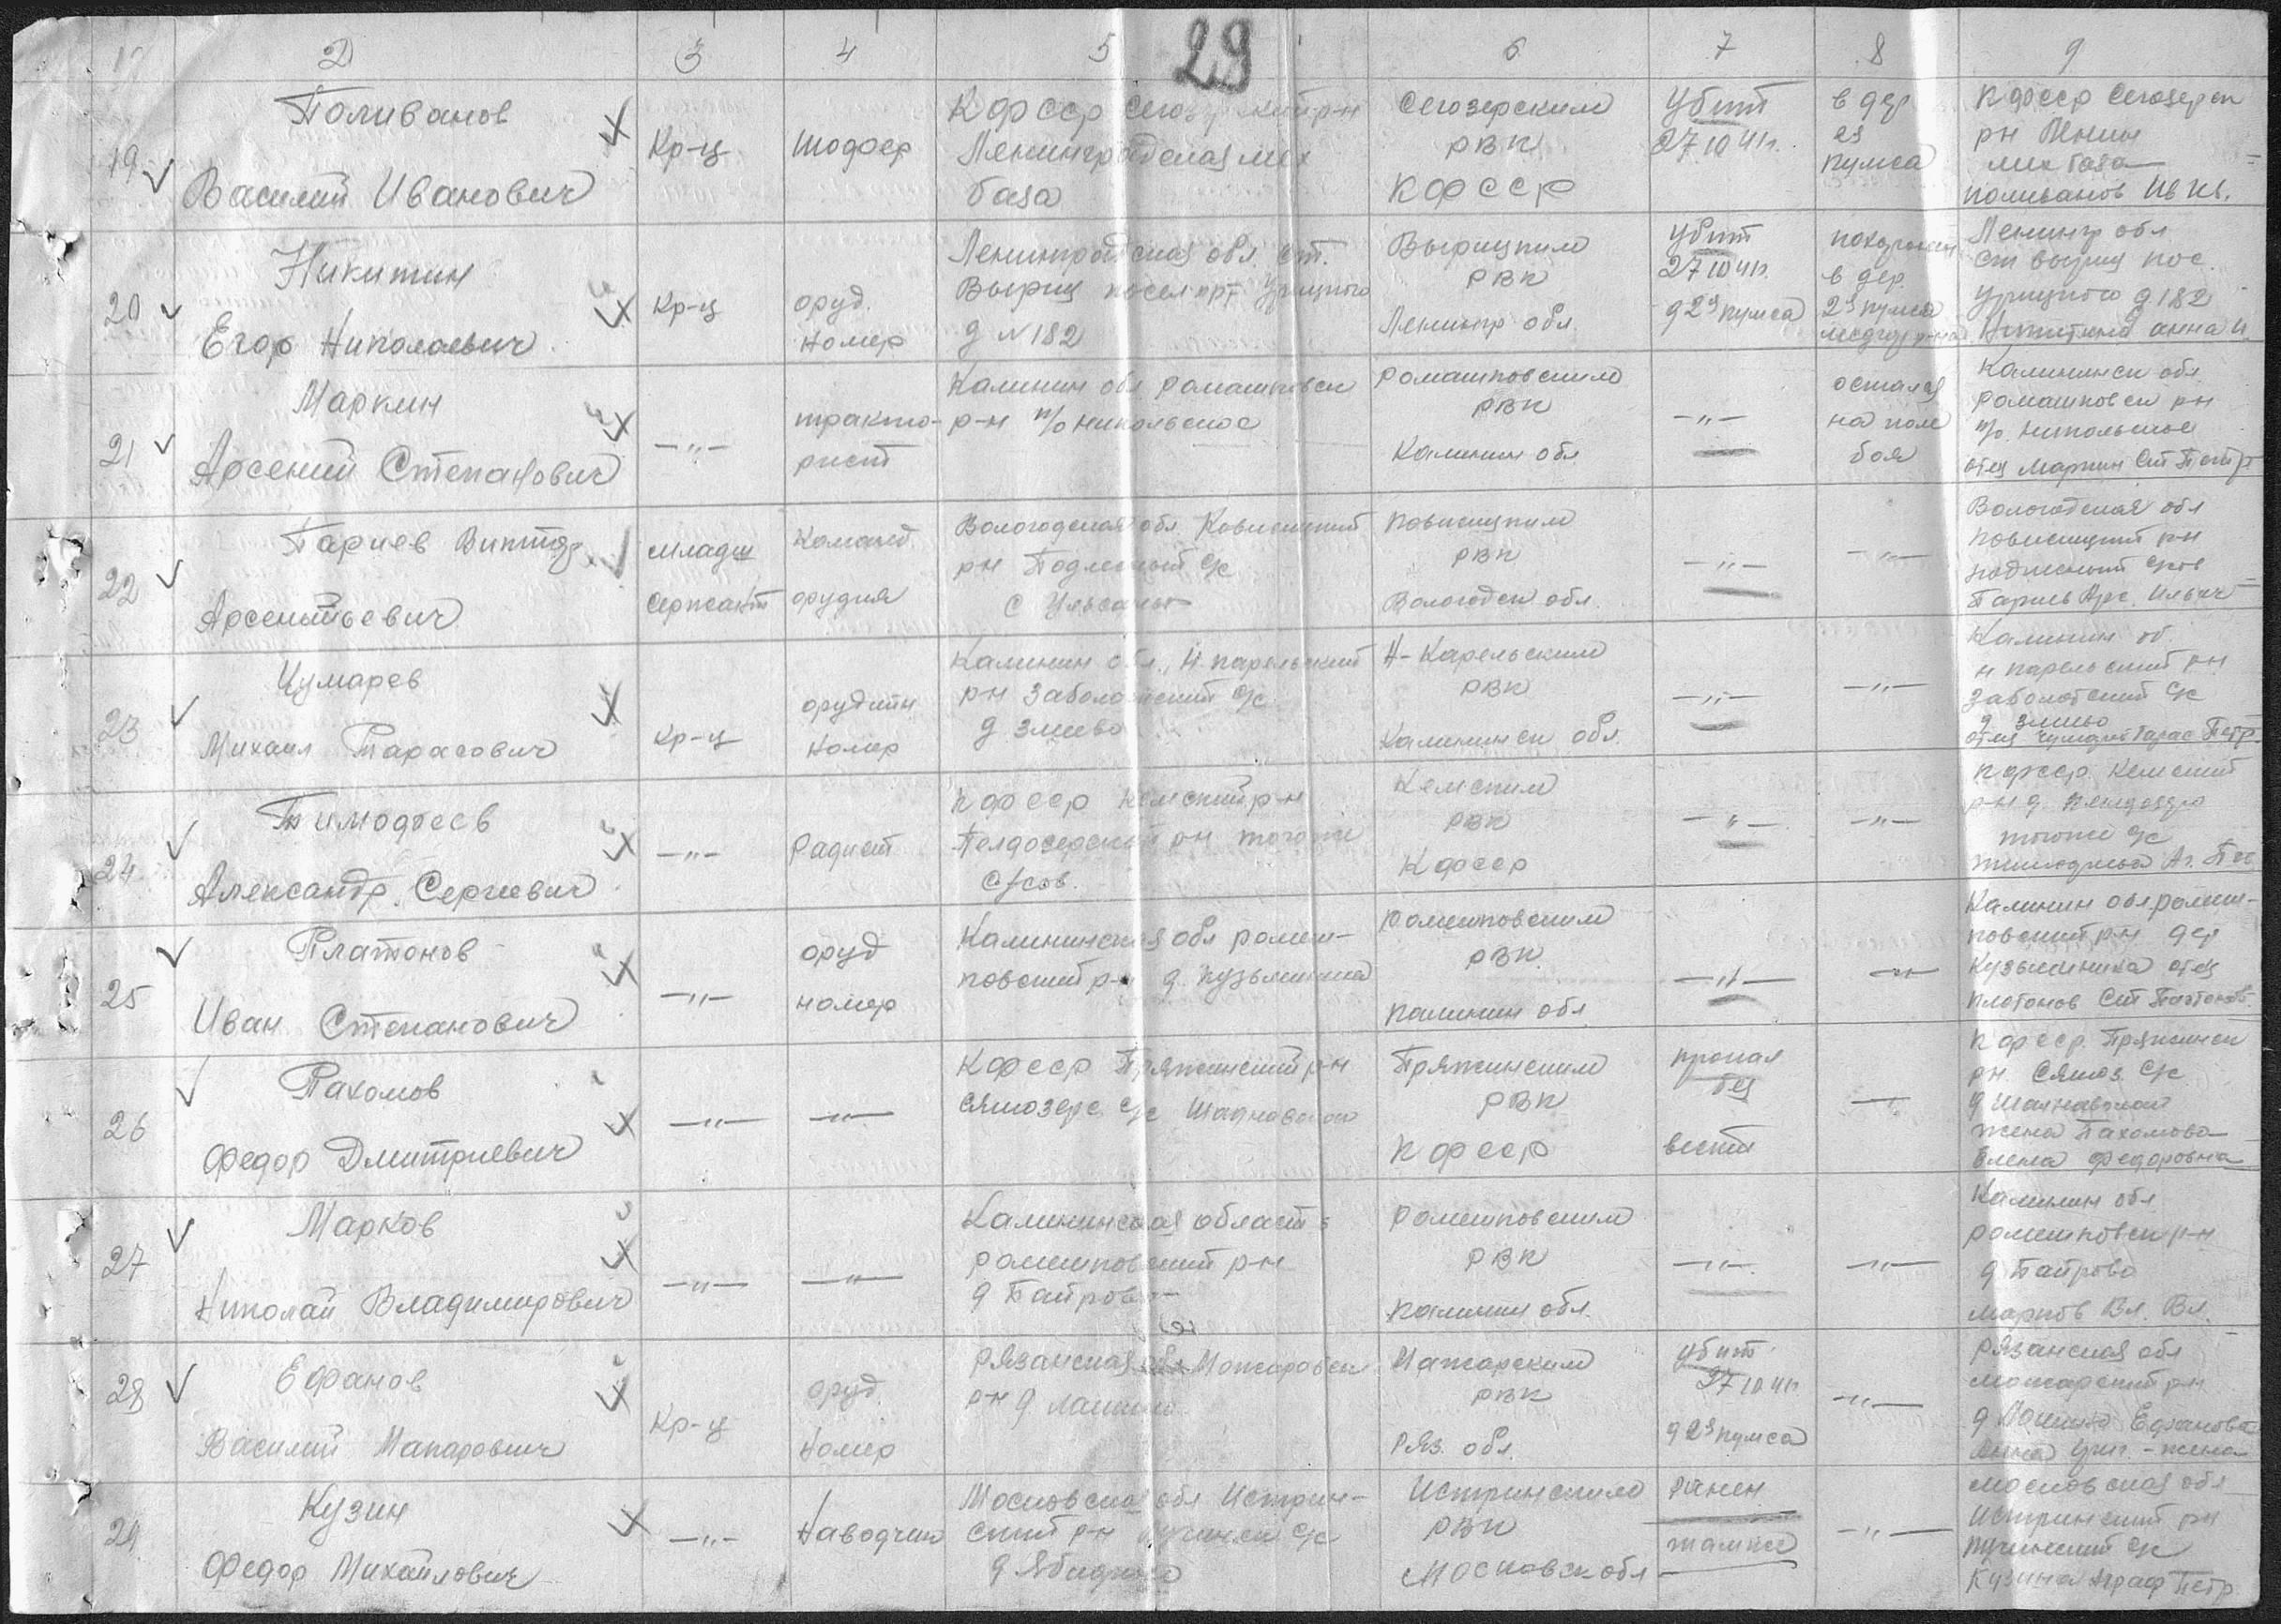 1 2 3 4 5 29 6 7 8 9
19 Поливанов
Василий Иванович
Кр-ц
Шофер
КФССР Сегозерский р-н
Ленинградская мех
база
Сегозерским
РВК
КФССР
Убит
27 10 41г.
в дер
23
пумса
КФССР Сегозерск
рн Ленин
мех база
Поливанов Ив Ив.
20 Никитин
Егор Николаевич
Кр-ц
оруд.
номер
Ленинградская обл. ст.
Вырица посел Урицкого
д N 182
Вырицким
РВК
Ленингр обл.
Убит
27 10 41г.
д 23 пумса
похоронен
в дер.
23 пумса
Ленингр обл
ст выриц пос.
Урицкого д 182
Никитина анна И.
21 Маркин
Арсений Степанович
—„—
тракто-
рист
Калинин обл Ромашковск
р-н п/о Никольское
Ромашковским
РВК
Калинин обл
—„—
остался
на поле
боя
Калининск обл
Ромашковск рн
п/о. Никольское
отец Маркин Ст Петр
22 Париев Виктор
Арсентьевич
младш
сержант
Команд.
орудия
Вологодская обл Ковжинский
рн Подлесный с/с
с
РВК
Вологодск обл.
—„—
—„—
Вологодская обл
рн
Париев Арс. Ильич
23 Чумарев
Михаил Тарасович
Кр-ц
орудийн
номер
Калинин обл., Н карельский
рн Заболотский с/с
д Змиево
Н-Карельским
РВК
Калининск обл.
—„—
—„—
Калинин об.
н карельский рн
Заболотский с/с
д Змиево
отец Чумарев Тарас Петр.
24 Тимофеев
Александр Сергеевич
—„—
Радист
КФССР Кемский р-н
рн тогоже
с/сов.
Кемским
РВК
КФССР
—„—
—„—
КФССР. Кемский
р-н д.
тогоже с/с
25 Платонов
Иван Степанович
—„—
оруд
номер
Калининская обл ромеш-
ковский р-н д. Кузьминка
Ромешковским
РВК
Калинин обл
—„—
—„—
Калинин обл ромеш-
ковский рн дер
Кузьминка отец
Платонов Ст Платонов.
26 Пахомов
Федор Дмитриевич
—„—
—„—
КФССР Пряжинский рн
Сямозерс. с/с
Пряжинским
РВК
КФССР
пропал
без
вести
—„—
КФССР. Пряжинск
рн. Сямоз. с/с
д
жена Пахомова
Елена Федоровна
27 Марков
Николай Владимирович
—„—
—„—
Калининская область
ромешковский р-н
д
Ромешковским
РВК
Калинин обл.
—„—
—„—
Калинин обл
ромешковск р-н
д
Марков Вл. Вл.
28 Ефанов
Василий Макарович
Кр-ц
оруд.
номер
Рязанская обл Можаровск
рн д
Можарским
РВК
Ряз. обл.
убит
27 10 41г.
д 23 пумса
—„—
Рязанская обл
можарский рн
д Ефанова
Анна Григ. - жена
29 Кузин
Федор Михайлович
—„—
Наводчик
Московская обл Истрин-
ский рн с/с
д
Истринским
РВК
Московск обл
ранен
—„—
московская обл
Истринский рн
с/с
Кузина Петр